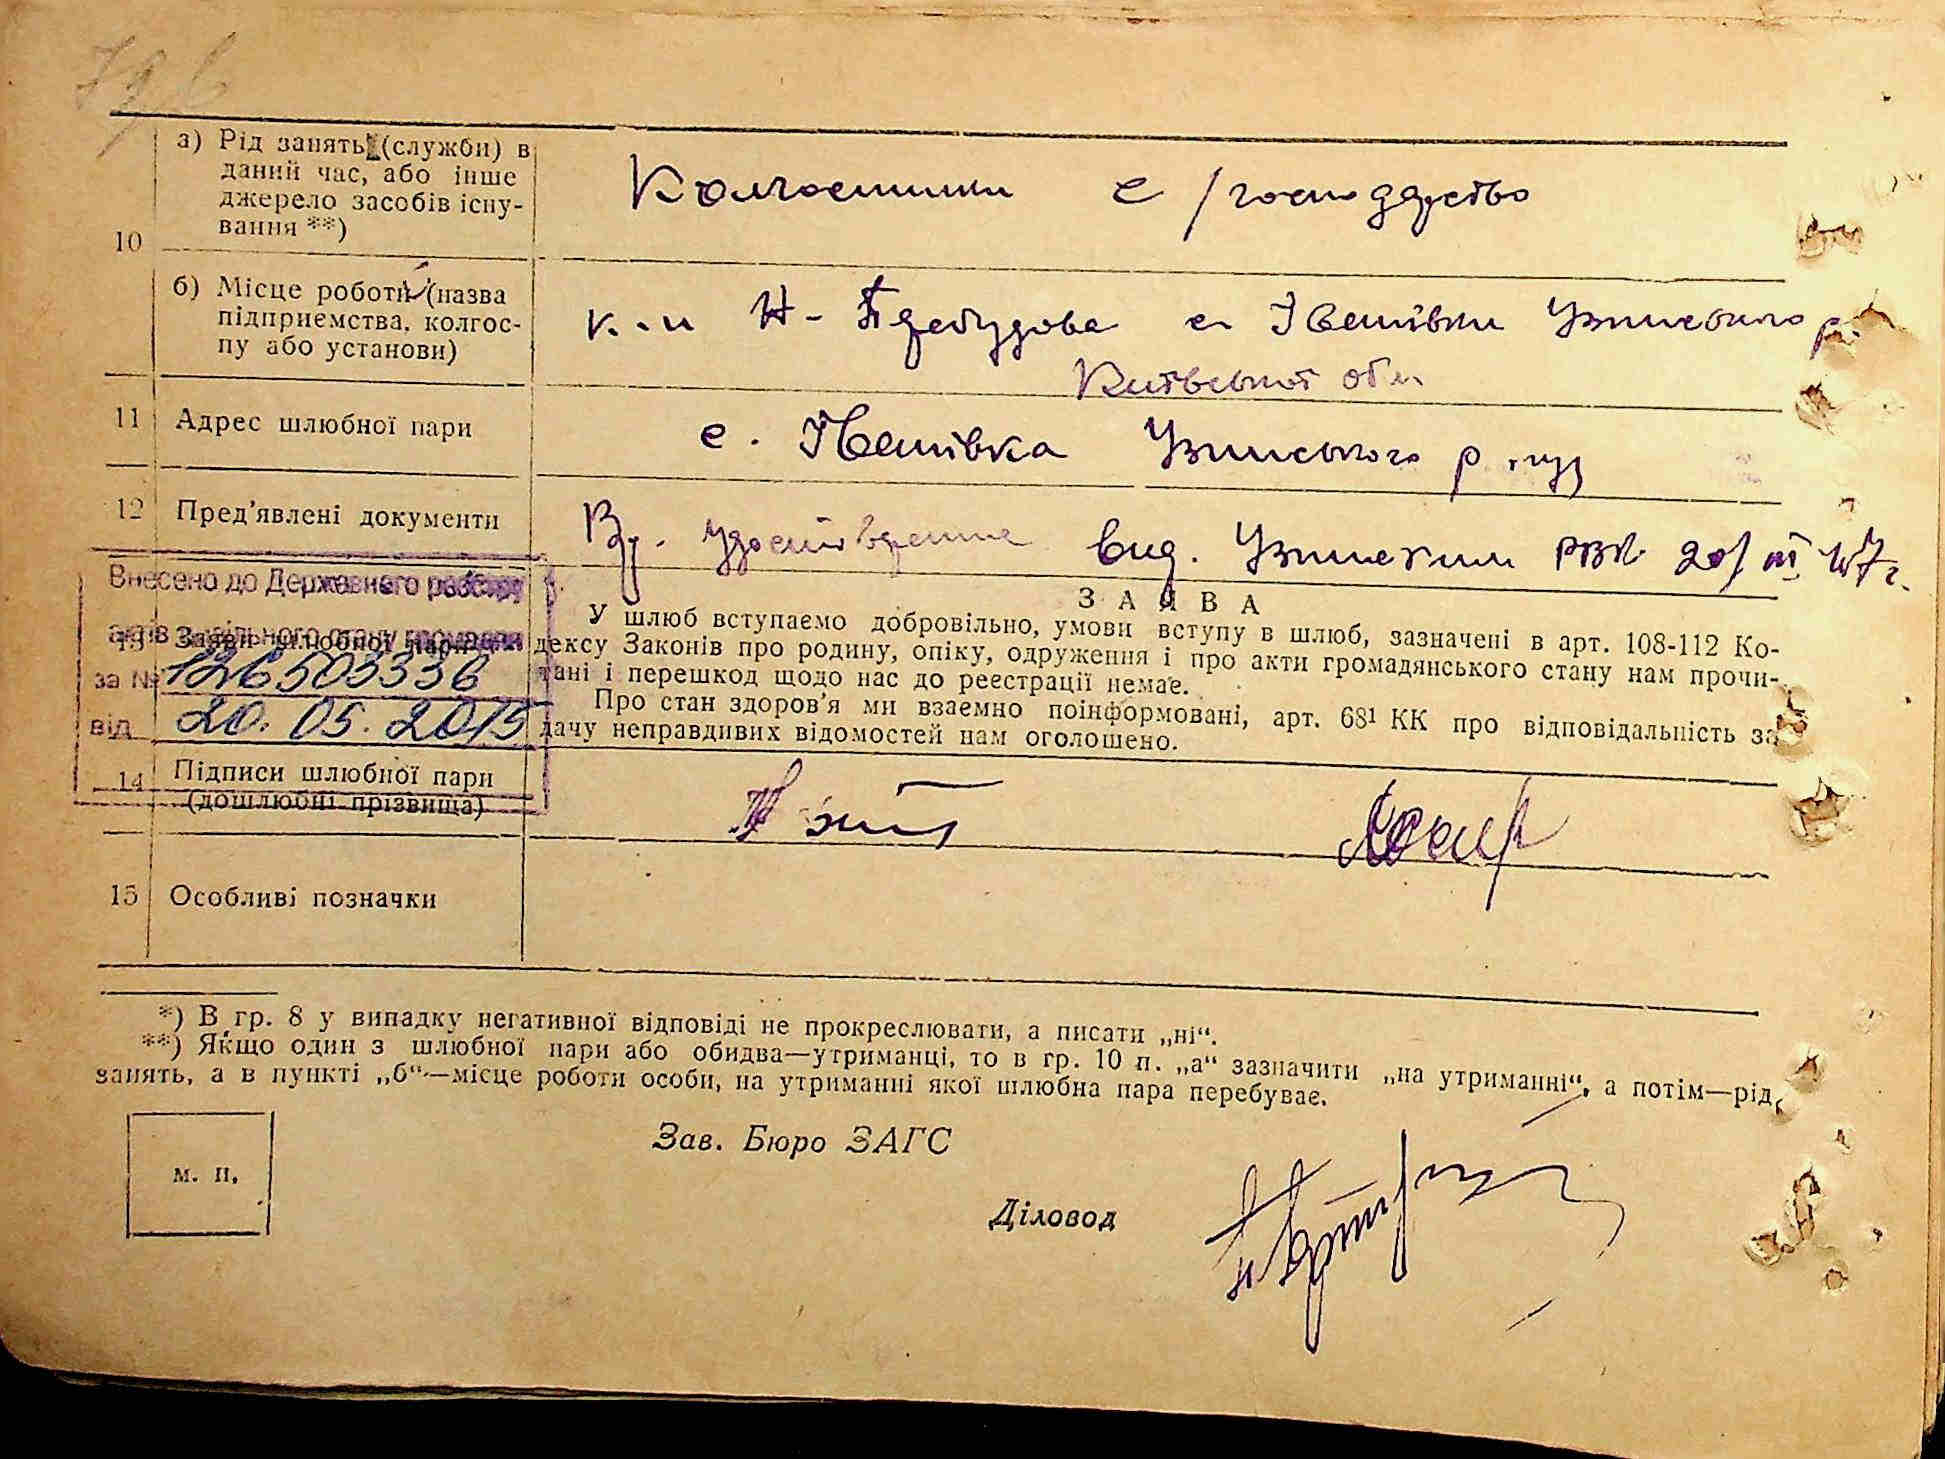 10
а) Рід занять (служби) в
даний час, або інше
джерело засобів існу-
вання **)
Колгоспники с/господарство
б) Місце роботи (назва
підприємства, колгос-
пу або установи)
к-п Н-Перебудова с. Іванівки Узинського р.
Київської обл.
11 Адрес шлюбної пари
с. Іванівка Узинського р.
12 Пред'явлені документи
Вр. удостоверение вид. Узинским РВК 20/III 47 г.
Внесено до Державного реєстру
актів цивільного стану громадян
за № 126503336
від 20.05.2015
13 Заява шлюбної пари
ЗАЯВА
У шлюб вступаємо добровільно, умови вступу в шлюб, зазначені в арт. 108-112 Ко-
дексу Законів про родину, опіку, одруження і про акти громадянського стану нам прочи-
тані і перешкод щодо нас до реєстрації немає.
Про стан здоров'я ми взаємно поінформовані, арт. 68¹ КК про відповідальність за
дачу неправдивих відомостей нам оголошено.
14 Підписи шлюбної пари
(дошлюбні прізвища)
15 Особливі позначки
*) В гр. 8 у випадку негативної відповіді не прокреслювати, а писати „ні“.
**) Якщо один з шлюбної пари або обидва—утриманці, то в гр. 10 п. „а“ зазначити „на утриманні“, а потім—рід
занять, а в пункті „б“—місце роботи особи, на утриманні якої шлюбна пара перебуває.
м. п.
Зав. Бюро ЗАГС
Діловод